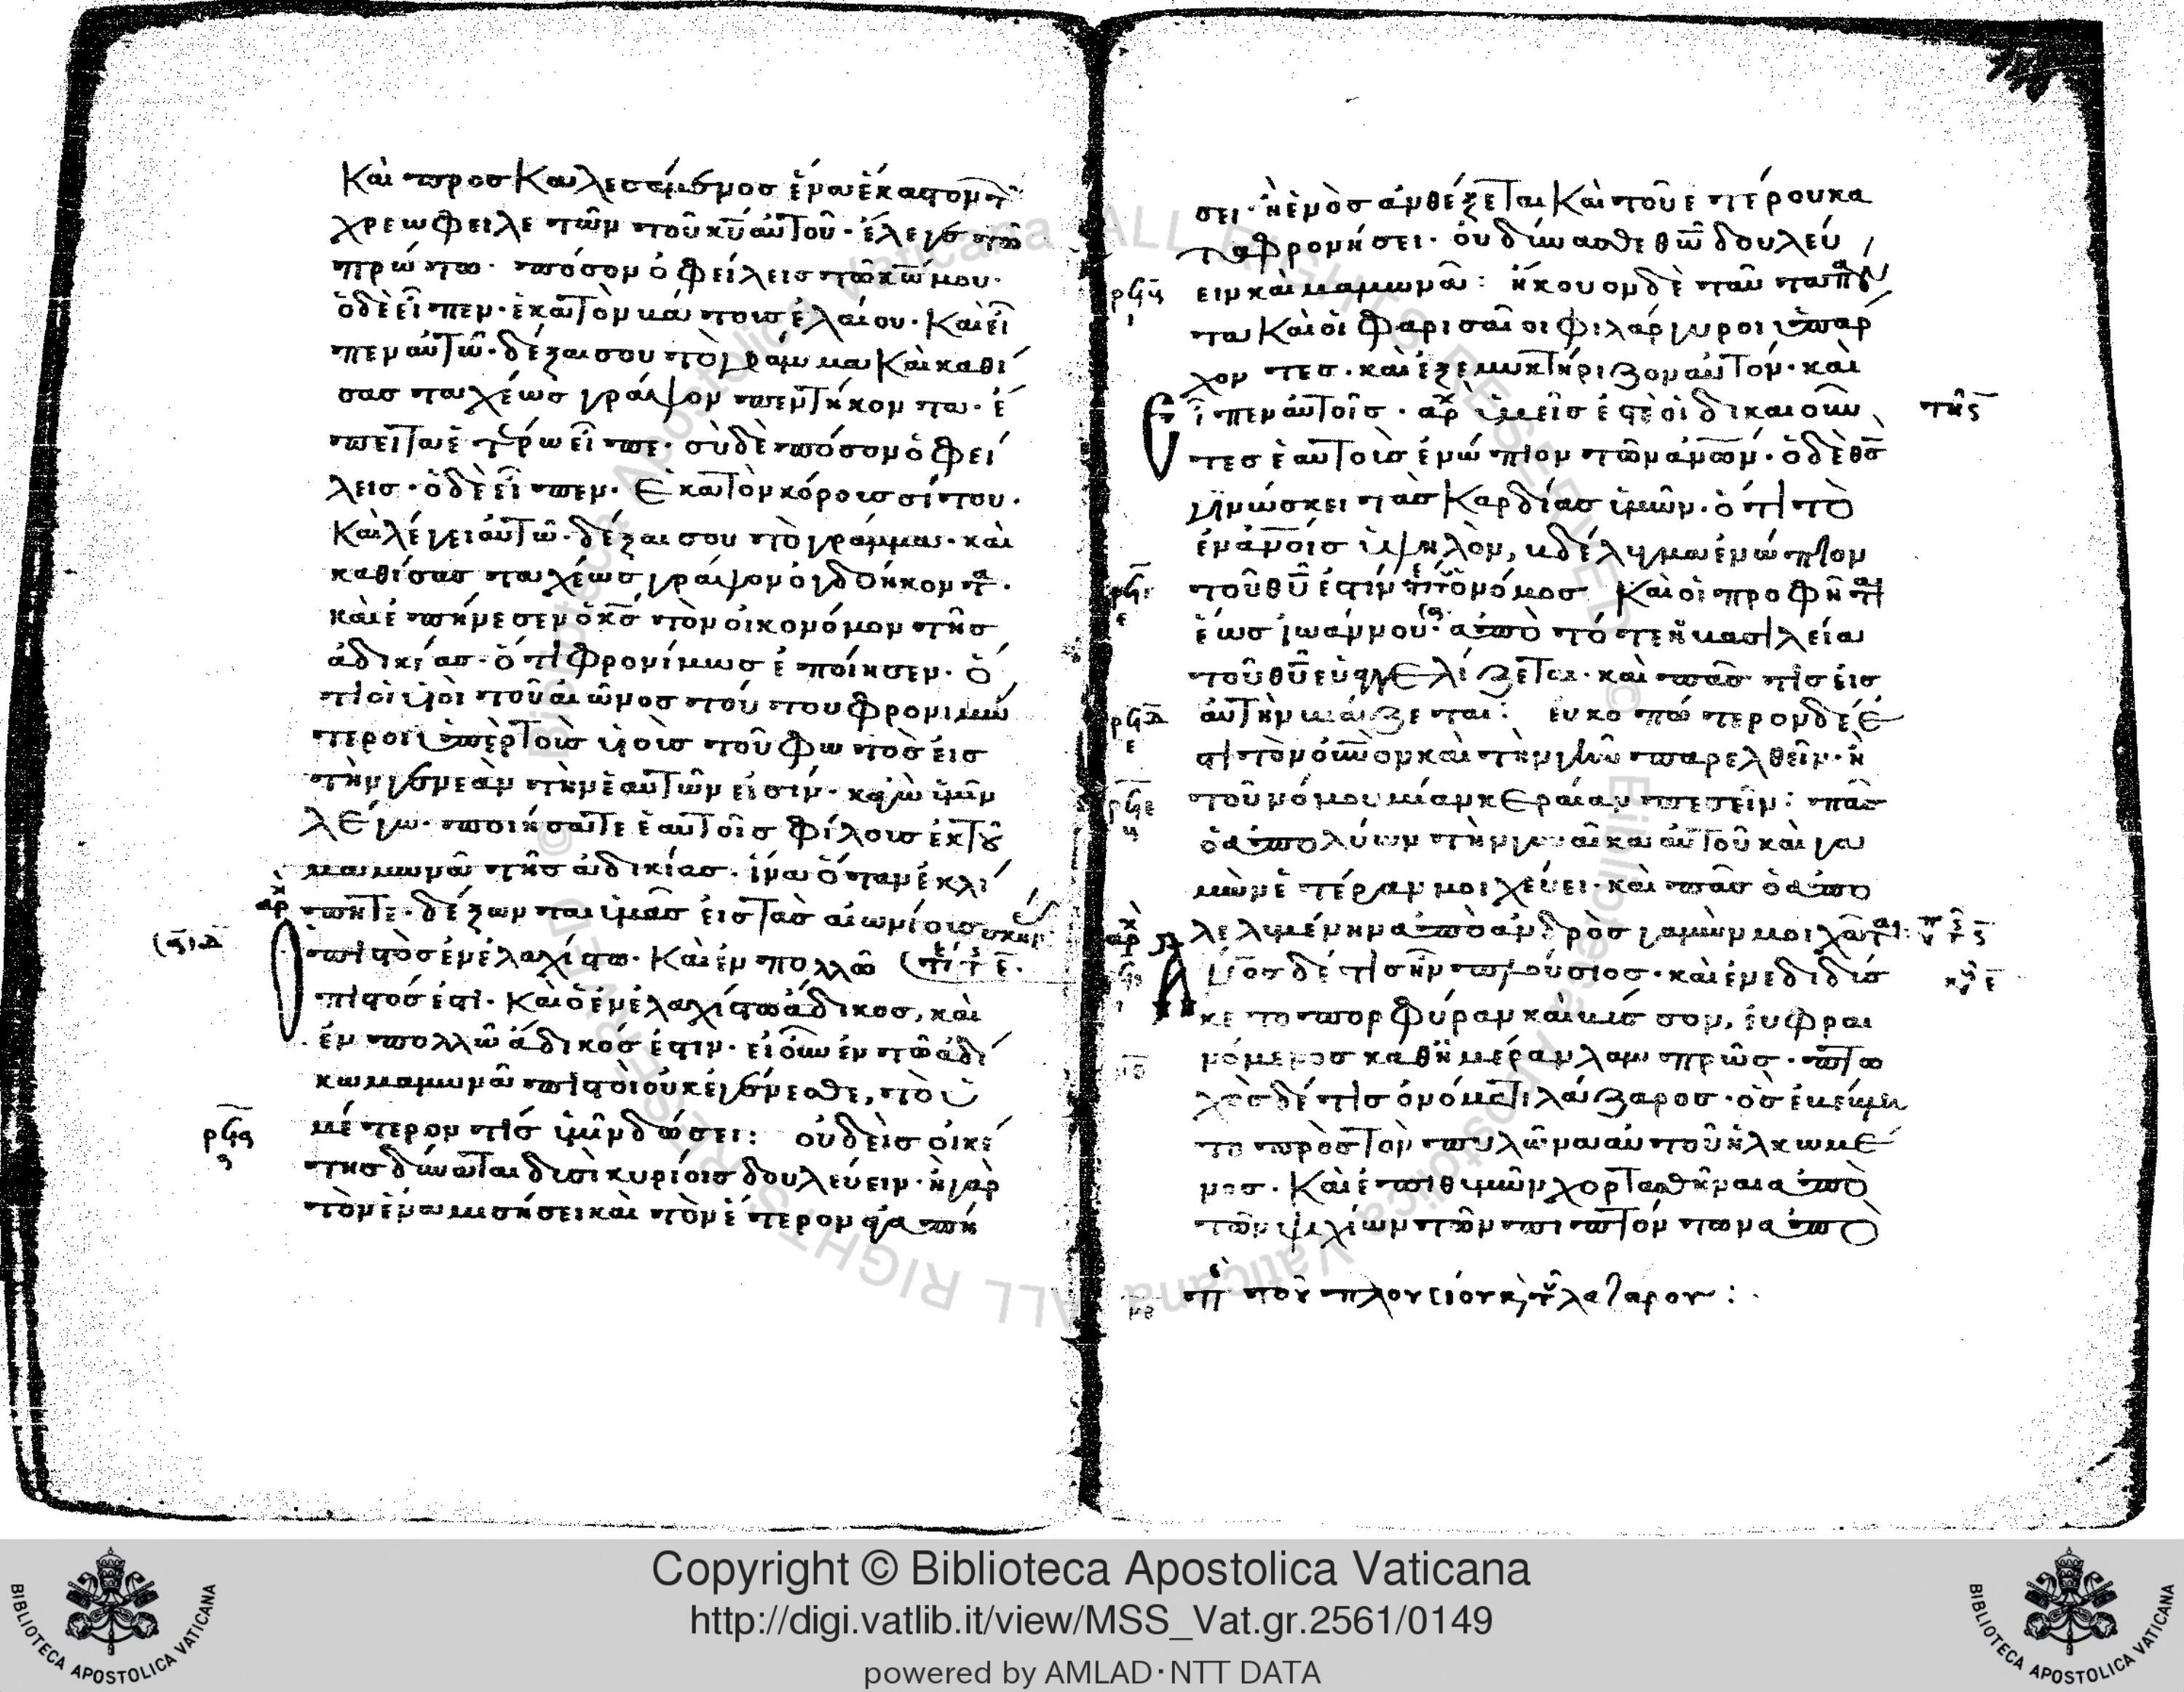 Καὶ προσκαλεσάμενος ἕνα ἕκαστον τῶν
χρεωφειλετῶν τοῦ κ̅υ̅ αὑτοῦ· ἔλεγεν τῶ
πρώτω· πόσον ὀφείλεις τῶ κ̅ω̅ μου·
ὁ δὲ εἶπεν· ἑκατὸν βάτους ἐλαίου· Καὶ εἶ
πεν αὐτῶ· δέξαι σου τὸ γράμμα Καὶ καθί
σας ταχέως γράψον πεντήκοντα· ἔ
πειτα ἑτέρω εἶπε· σὺ δὲ πόσον ὀφεί
λεις· ὁ δὲ εἶπεν· Ἑκατὸν κόρους σίτου·
Καὶ λέγει αὐτῶ· δέξαι σου τὸ γράμμα· καὶ
καθίσας ταχέως γράψον ὀγδοήκοντα·
καὶ ἐπήνεσεν ὁ κ̅ς̅ τὸν οἰκονόμον τῆς
ἀδικίας· ὅτι φρονίμως ἐποίησεν· ὅ
τι οἱ υἱοὶ τοῦ αἰῶνος τούτου φρονιμώ
τεροι ὑπὲρ τοὺς υἱοὺς τοῦ φωτὸς εἰς
τὴν γενεὰν τὴν ἑαυτῶν εἰσίν· κἀγὼ ὑμῖν
λέγω· ποιήσατε ἑαυτοῖς φίλους ἐκ τοῦ
μαμωνᾶ τῆς ἀδικίας· ἵνα ὅταν ἐκλί
πητε· δέξωνται ὑμᾶς εἰς τὰς αἰωνίους σκην
ὁ πιστὸς ἐν ἐλαχίστω· Καὶ ἐν πολλῶ
πιστός ἐστι· Καὶ ὁ ἐν ἐλαχίστω ἄδικος, καὶ
ἐν πολλῶ ἄδικός ἐστιν· εἰ οὖν ἐν τῶ ἀδί
κω μαμωνᾶ πιστοὶ οὐκ ἐγένεσθε, τὸ ὑ
μέτερον τίς ὑμῖν δώσει: οὐδεὶς οἰκέ
της δύναται δυσὶ κυρίοις δουλεύειν· ἢ γὰρ
τὸν ἕνα μισήσει καὶ τὸν ἕτερον ἀγαπή
σει· ἢ ἑνὸς ἀνθέξεται Καὶ τοῦ ἑτέρου κα
ταφρονήσει· οὐ δύνασθε θ̅ω̅ δουλεύ
ειν καὶ μαμωνᾶ: ἤκουον δὲ ταῦτα πάν
τα Καὶ οἱ Φαρισαῖοι φιλάργυροι ὑπάρ
χοντες· καὶ ἐξεμυκτήριζον αὐτόν· καὶ
εἶπεν αὐτοῖς· ὑμεῖς ἐστὲ οἱ δικαιοῦν
τες ἑαυτοὺς ἐνώπιον τῶν ἀ̅ν̅ω̅ν̅· ὁ δὲ θ̅ς̅
γινώσκει τὰς Καρδίας ὑμῶν· ὅτι τὸ
ἐν ἀ̅ν̅οις ὑψηλὸν, βδέλυγμα ἐνώπιον
τοῦ θ̅υ̅ ἐστιν ὁ νόμος Καὶ οἱ προφῆται
ἕως ἰωάννου· ἀπὸ τότε ἡ βασιλεία
τοῦ θ̅υ̅ εὐαγγελίζεται· καὶ πᾶς τις εἰς
αὐτὴν βιάζεται: εὐκοπώτερον δέ ἐ
στι τὸν ο̅υ̅ν̅ον καὶ τὴν γῆν παρελθεῖν· ἢ
τοῦ νόμου μίαν κεραίαν πεσεῖν: πᾶς
ὁ ἀπολύων τὴν γυναῖκα αὐτοῦ καὶ γα
μῶν ἑτέραν μοιχεύει· καὶ πᾶς ὁ ἀπο
λελυμένην ἀπὸ ἀνδρὸς γαμῶν μοιχᾶται:
Α̅ν̅ος δέ τις ἦν πλούσιος· καὶ ἐνεδιδύσ
κετο πορφύραν καὶ βύσσον, εὐφραι
νόμενος καθ ἡμέραν λαμπρῶς· πτω
χὸς δέ τις ὀνόματι λάζαρος· ὃς ἐβέβλη
το πρὸς τὸν πυλῶνα αὐτοῦ ἡλκωμέ
νος· Καὶ ἐπιθυμῶν χορτασθῆναι ἀπὸ
τῶν ψιχίων τῶν πιπτόντων ἀπὸ
π τοῦ πλουσίου κ τοῦ λαζάρου:
Copyright © Biblioteca Apostolica Vaticana
http://digi.vatlib.it/view/MSS_Vat.gr.2561/0149
powered by AMLAD·NTT DATA
BIBLIOTECA APOSTOLICA VATICANA
BIBLIOTECA APOSTOLICA VATICANA